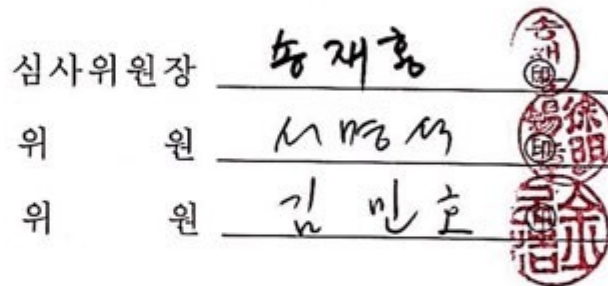 심사위원장 송재홍 印
위 원 서명석 印
위 원 김민호 印